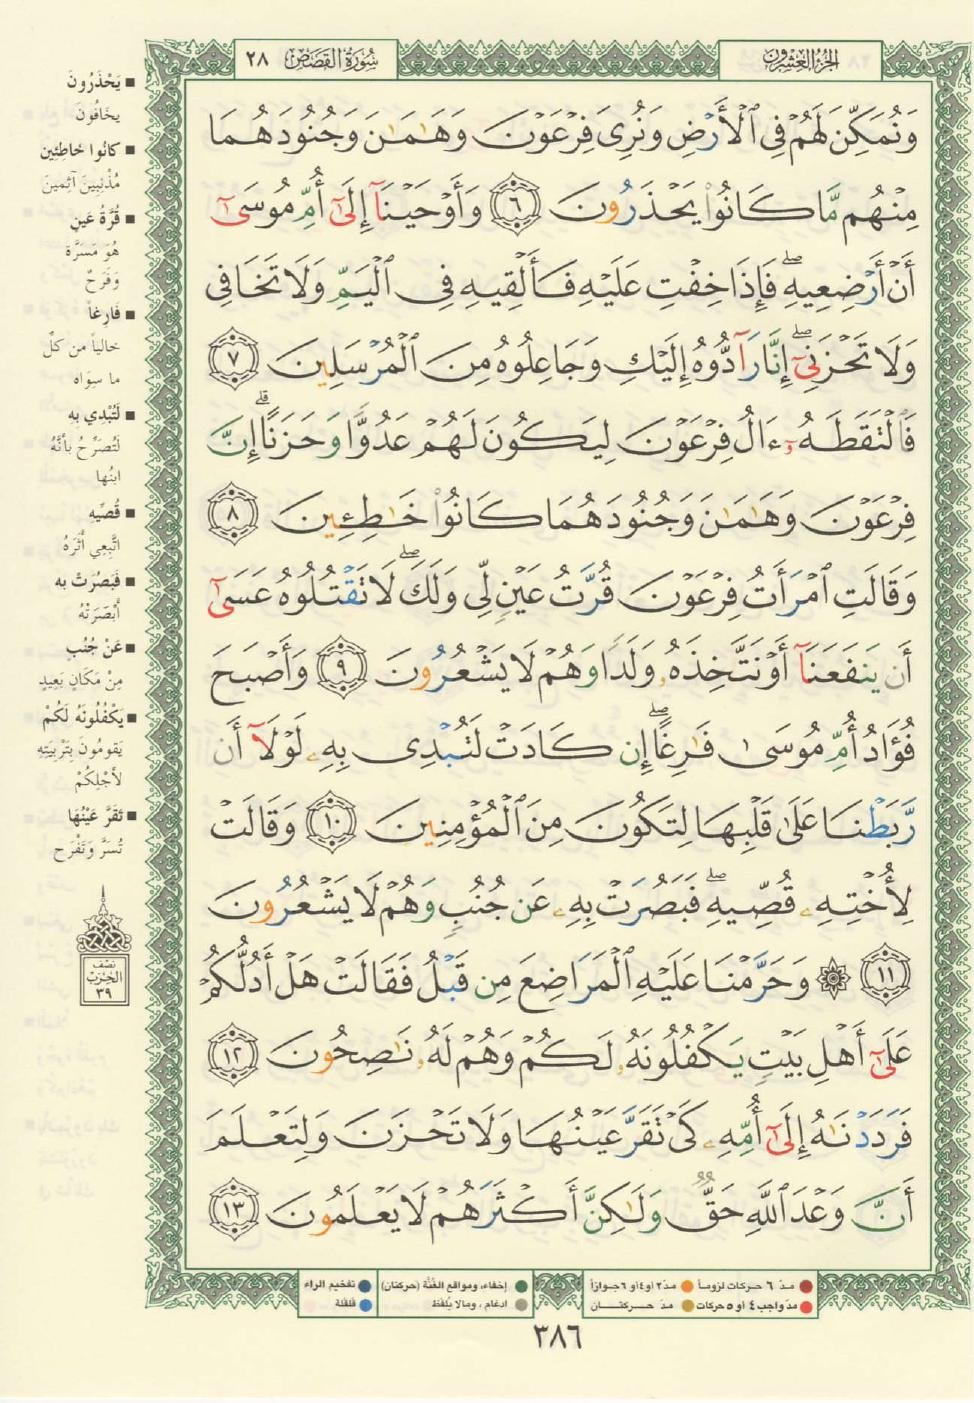 الجزء العشرون
سورة القصص ٢٨
وَنُمَكِّنَ لَهُمْ فِي ٱلْأَرْضِ وَنُرِيَ فِرْعَوْنَ وَهَٰمَٰنَ وَجُنُودَهُمَا
مِنْهُم مَّا كَانُوا۟ يَحْذَرُونَ ٦ وَأَوْحَيْنَآ إِلَىٰٓ أُمِّ مُوسَىٰٓ
أَنْ أَرْضِعِيهِ ۖ فَإِذَا خِفْتِ عَلَيْهِ فَأَلْقِيهِ فِي ٱلْيَمِّ وَلَا تَخَافِي
وَلَا تَحْزَنِيٓ ۖ إِنَّا رَآدُّوهُ إِلَيْكِ وَجَاعِلُوهُ مِنَ ٱلْمُرْسَلِينَ ٧
فَٱلْتَقَطَهُۥٓ ءَالُ فِرْعَوْنَ لِيَكُونَ لَهُمْ عَدُوًّا وَحَزَنًا ۗ إِنَّ
فِرْعَوْنَ وَهَٰمَٰنَ وَجُنُودَهُمَا كَانُوا۟ خَٰطِـِٔينَ ٨
وَقَالَتِ ٱمْرَأَتُ فِرْعَوْنَ قُرَّتُ عَيْنٍ لِّي وَلَكَ ۖ لَا تَقْتُلُوهُ عَسَىٰٓ
أَن يَنفَعَنَآ أَوْ نَتَّخِذَهُۥ وَلَدًا وَهُمْ لَا يَشْعُرُونَ ٩ وَأَصْبَحَ
فُؤَادُ أُمِّ مُوسَىٰ فَٰرِغًا ۖ إِن كَادَتْ لَتُبْدِي بِهِۦ لَوْلَآ أَن
رَّبَطْنَا عَلَىٰ قَلْبِهَا لِتَكُونَ مِنَ ٱلْمُؤْمِنِينَ ١٠ وَقَالَتْ
لِأُخْتِهِۦ قُصِّيهِ ۖ فَبَصُرَتْ بِهِۦ عَن جُنُبٍ وَهُمْ لَا يَشْعُرُونَ
١١ ۞ وَحَرَّمْنَا عَلَيْهِ ٱلْمَرَاضِعَ مِن قَبْلُ فَقَالَتْ هَلْ أَدُلُّكُمْ
عَلَىٰٓ أَهْلِ بَيْتٍ يَكْفُلُونَهُۥ لَكُمْ وَهُمْ لَهُۥ نَٰصِحُونَ ١٢
فَرَدَدْنَٰهُ إِلَىٰٓ أُمِّهِۦ كَيْ تَقَرَّ عَيْنُهَا وَلَا تَحْزَنَ وَلِتَعْلَمَ
أَنَّ وَعْدَ ٱللَّهِ حَقٌّ وَلَٰكِنَّ أَكْثَرَهُمْ لَا يَعْلَمُونَ ١٣
■ يَحْذَرُونَ
يخافُونَ
■ كانُوا خاطِئِين
مُذْنِبِينَ آثِمِينَ
■ قُرَّةُ عَينٍ
هُوَ مَسَرَّة
وَفَرَحٌ
■ فَارِغاً
خالياً من كلِّ
ما سِوَاه
■ لَتُبْدِي بِهِ
لَتُصَرِّحُ بأنَّهُ
ابنُها
■ قُصِّيهِ
اتَّبِعِي أثَرَهُ
■ فَبَصُرَتْ بِه
أبْصَرَتْهُ
■ عَنْ جُنُبٍ
مِنْ مَكَانٍ بَعِيدٍ
■ يَكْفُلُونَهُ لَكُمْ
يَقومُونَ بِتَرْبِيَتِهِ
لأجْلِكُمْ
■ تَقَرَّ عَيْنُهَا
تُسَرَّ وَتَفْرَح
نصف
الحزب
٣٩
مدّ ٦ حركات لزوماً مدّ ٢ أو ٤ أو ٦ جوازاً
مدّ واجب ٤ أو ٥ حركات مدّ حركتان
إخفاء، ومواقع الغُنَّة (حركتان) تفخيم الراء
ادغام، ومالا يُلفظ قلقلة
٣٨٦